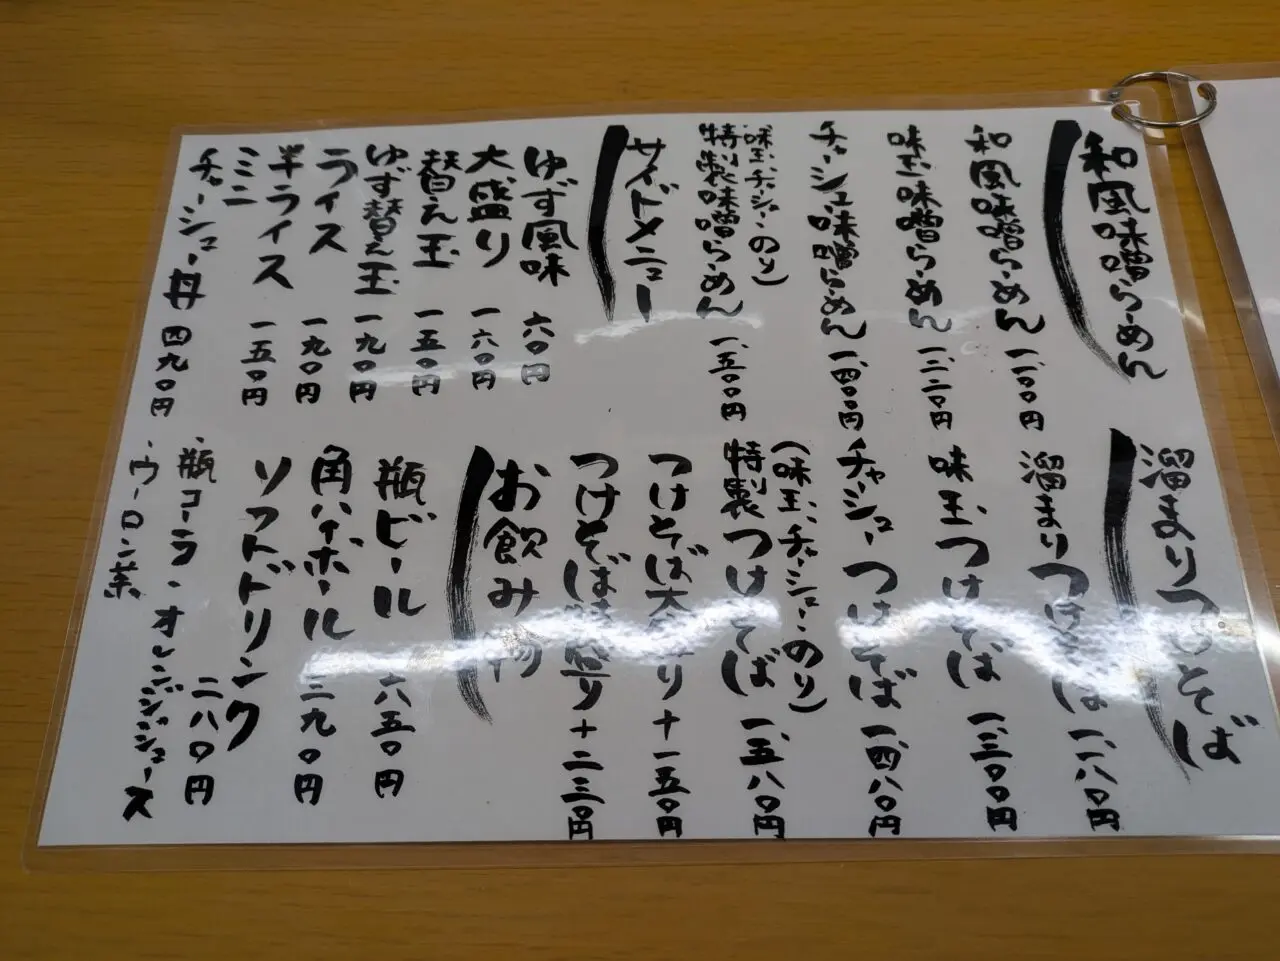 和風味噌らーめん
和風味噌らーめん 一、一〇〇円
味玉味噌らーめん 一、二二〇円
チャーシュー味噌らーめん 一、四〇〇円
特製味噌らーめん 一、五〇〇円
(味玉、チャーシュー、のり)
サイドメニュー
ゆず風味 六〇円
大盛り 一六〇円
替え玉 一五〇円
ゆず替え玉 一九〇円
ライス 一九〇円
半ライス 一五〇円
ミニ
チャーシュー丼 四九〇円
溜まりつけそば
溜まりつけそば 一、一八〇円
味玉つけそば 一、三〇〇円
チャーシューつけそば 一、四八〇円
特製つけそば 一、五八〇円
(味玉、チャーシュー、のり)
つけそば大盛り+一五〇円
つけそば特盛り+二三〇円
お飲み物
瓶ビール 六五〇円
角ハイボール
ソフトドリンク 二八〇円
・瓶コーラ・オレンジジュース
・ウーロン茶